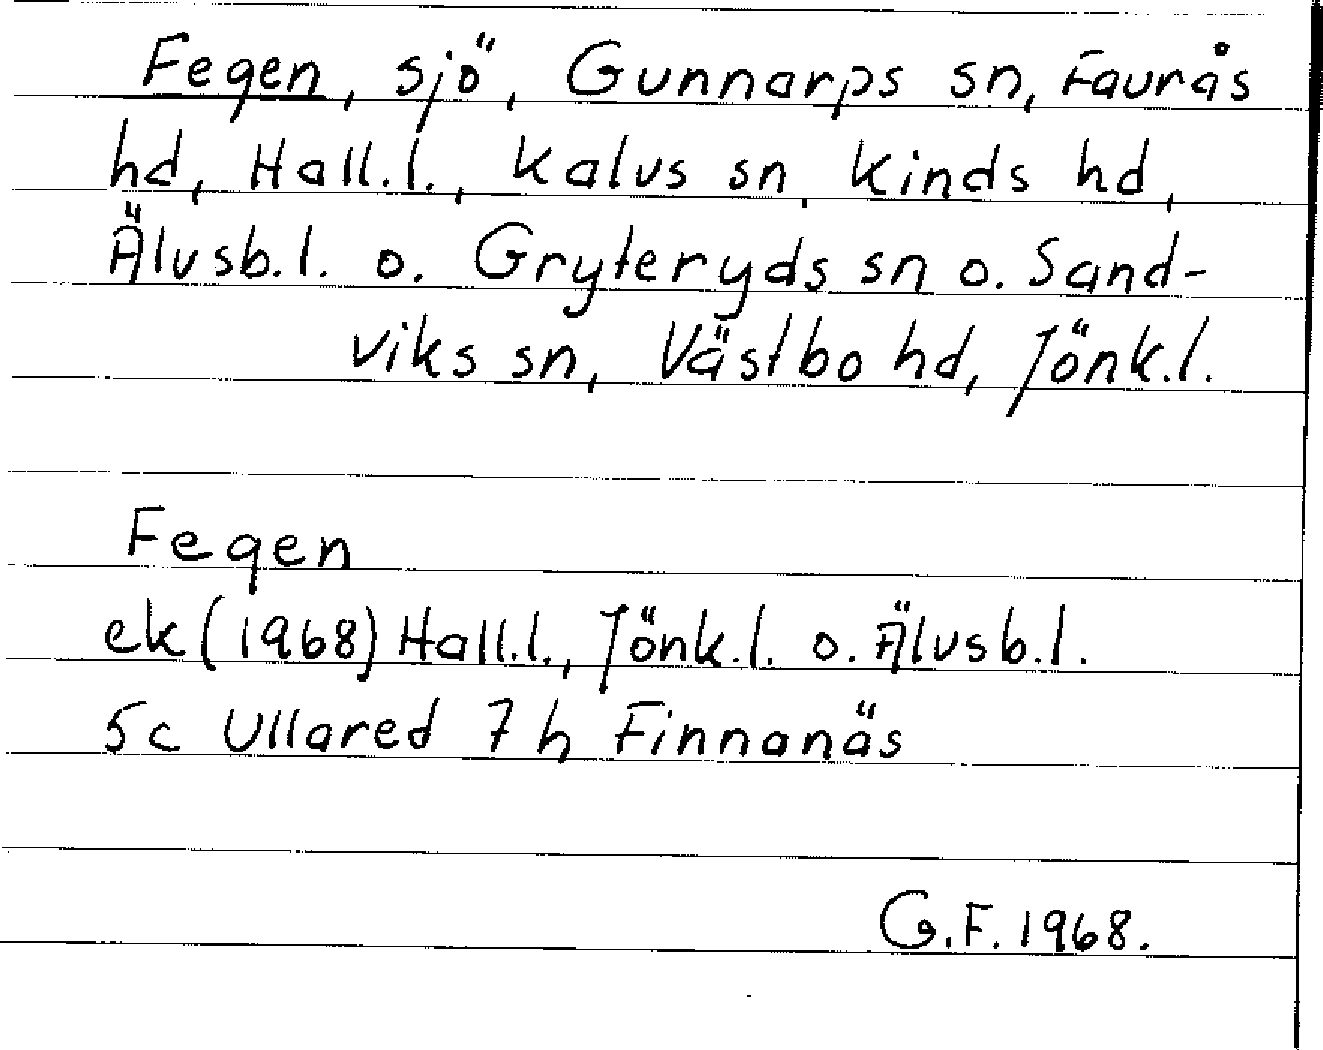 Fegen, sjö, Gunnarps sn, Faurås
hd, Hall.l., Kalvs sn, Kinds hd,
Älvsb.l. o. Gryteryds sn o. Sand-
viks sn, Västbo hd, Jönk.l.
Fegen
ek (1968) Hall.l., Jönk.l. o. Älvsb.l.
5c Ullared 7h Finnanäs
G.F. 1968.